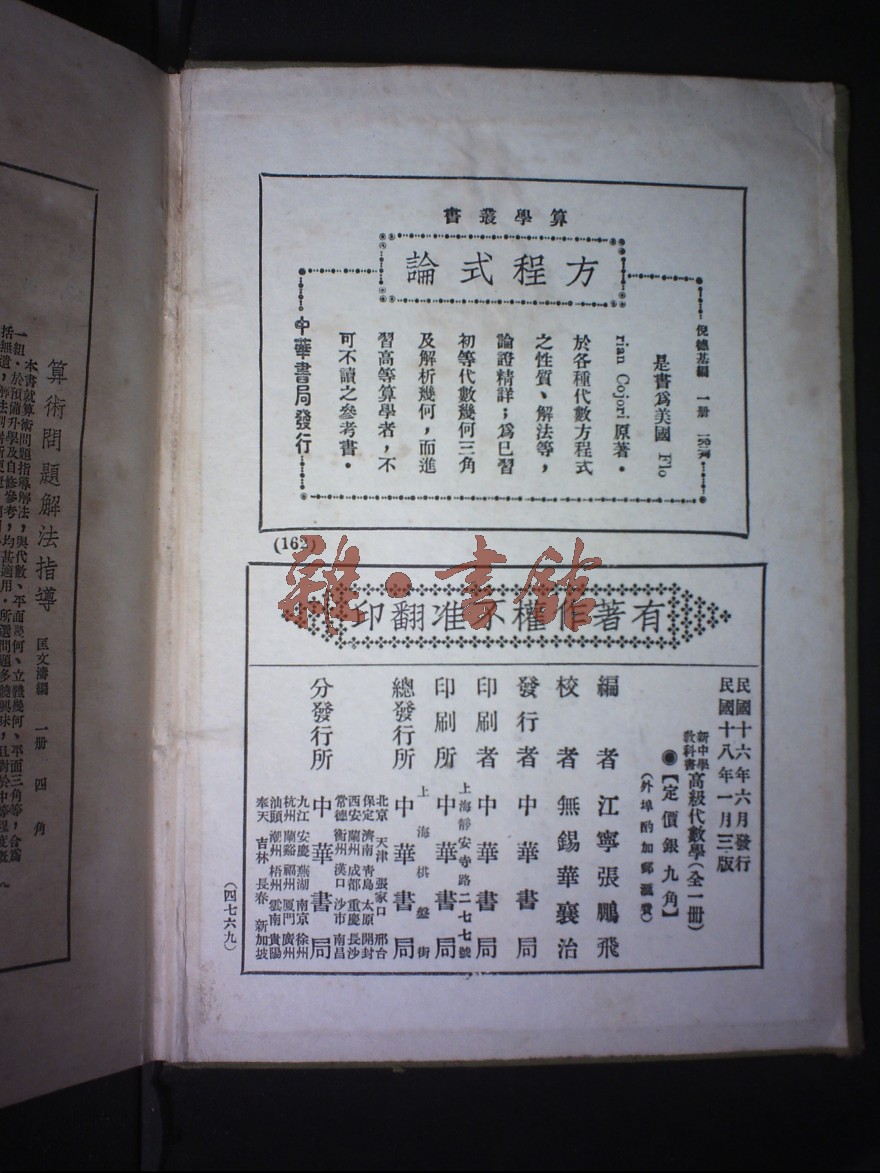 算學叢書
方程式論
倪德基編 一冊 一元二角
是書爲美國 Flo
rian Cojori 原著·
於各種代數方程式
之性質、解法等，
論證精詳；爲已習
初等代數幾何三角
及解析幾何，而進
習高等算學者，不
可不讀之參考書·
中華書局發行
(162)
有著作權不准翻印
民國十六年六月發行
民國十八年一月三版
新中學教科書 高級代數學（全一冊）
◉【定價銀九角】
（外埠酌加郵滙費）
編者 江寧張鵬飛
校者 無錫華襄治
發行者 中華書局
印刷者 中華書局
上海靜安寺路二七七號
印刷所 中華書局
上海棋盤街
總發行所 中華書局
分發行所 中華書局
北京 天津 張家口 邢台
保定 濟南 青島 太原 開封
西安 蘭州 成都 重慶 長沙
常德 衡州 漢口 沙市 南昌
九江 安慶 蕪湖 南京 徐州
杭州 蘭谿 福州 厦門 廣州
汕頭 潮州 梧州 雲南 貴陽
奉天 吉林 長春 新加坡
（四七六九）
算術問題解法指導 匡文濤編 一冊 四角
本書就算術問題指導解法，與代數、平面幾何、立體幾何、平面三角等，合爲
一組·於預備升學及自修參考，均甚適用·所選問題多饒興味，且對於中等程度概
雜·書館